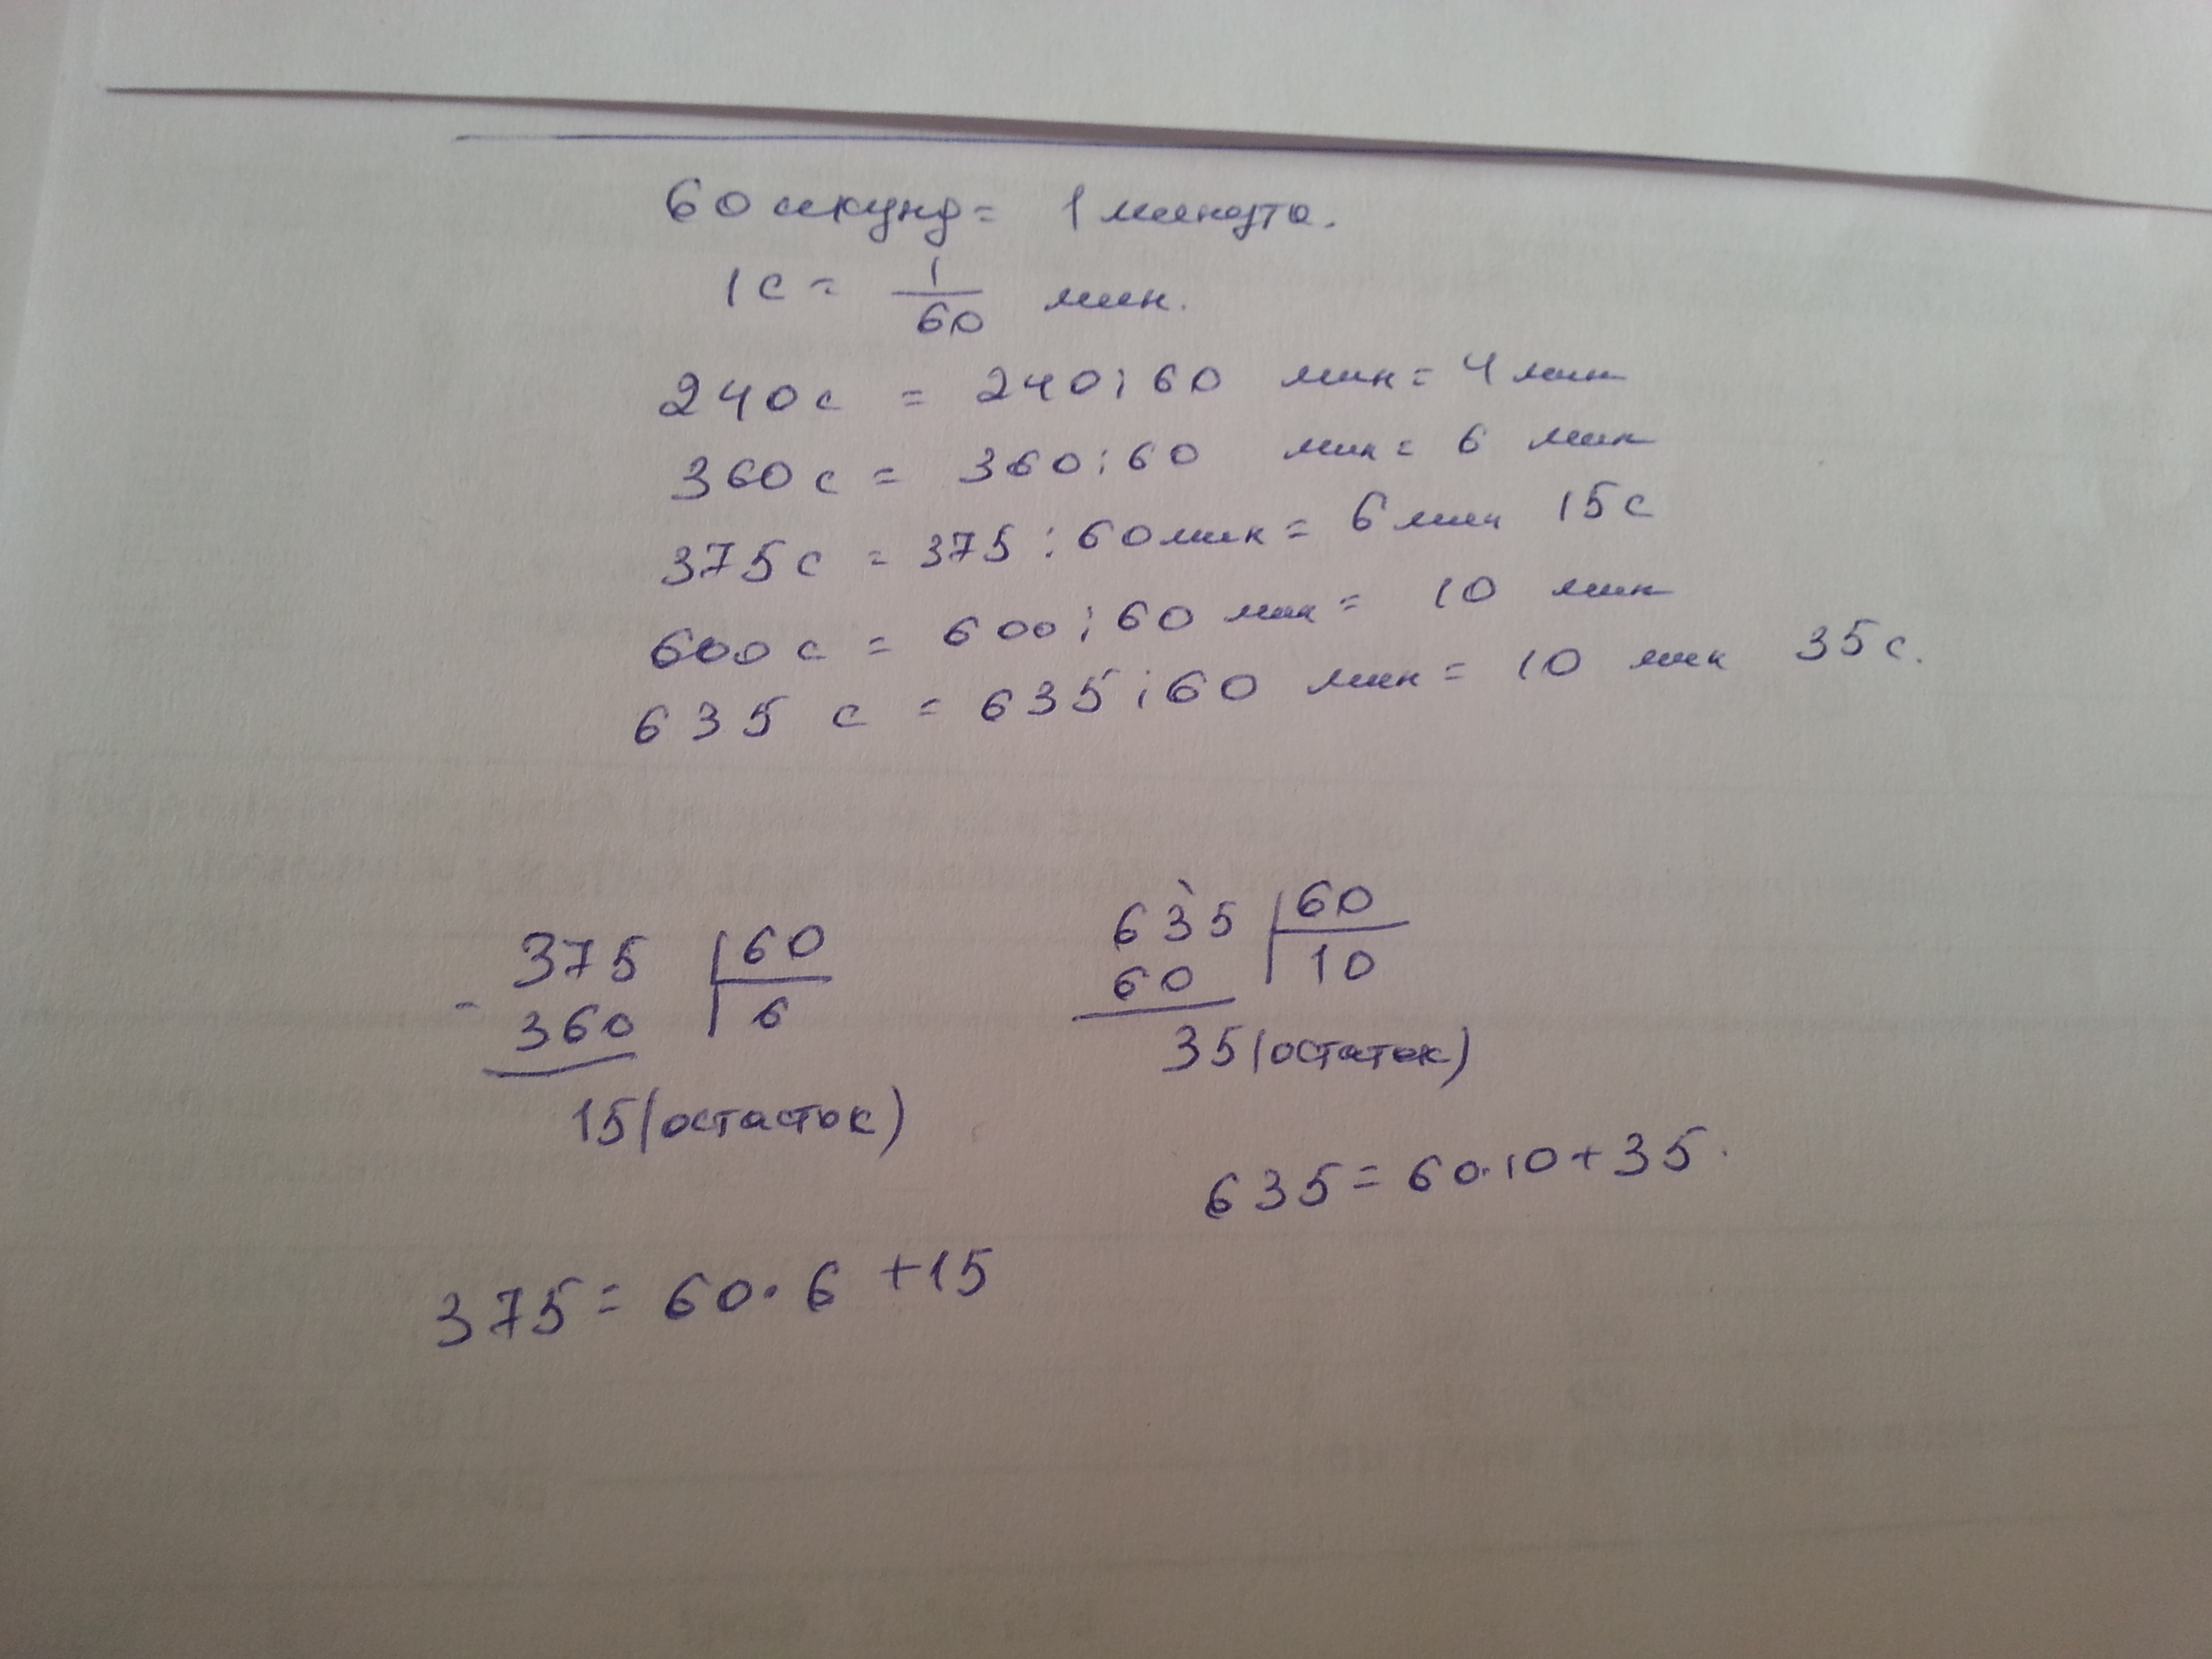 60 секунд = 1 минута.
1 с = 1/60 мин.
240 с = 240 : 60 мин = 4 мин
360 с = 360 : 60 мин = 6 мин
375 с = 375 : 60 мин = 6 мин 15 с
600 с = 600 : 60 мин = 10 мин
635 с = 635 : 60 мин = 10 мин 35 с.
375 | 60
- 360 | 6
15 (остасток)
635 | 60
60 | 10
35 (остаток)
635 = 60 · 10 + 35.
375 = 60 · 6 + 15